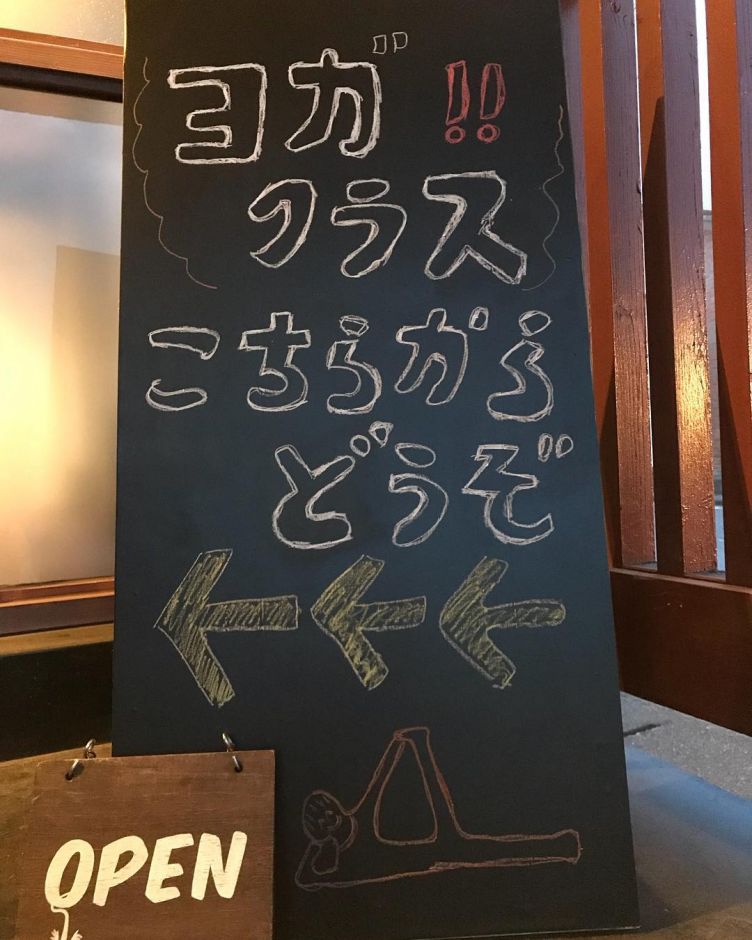 ヨガ!!
クラス
こちらから
どうぞ
←←←
OPEN